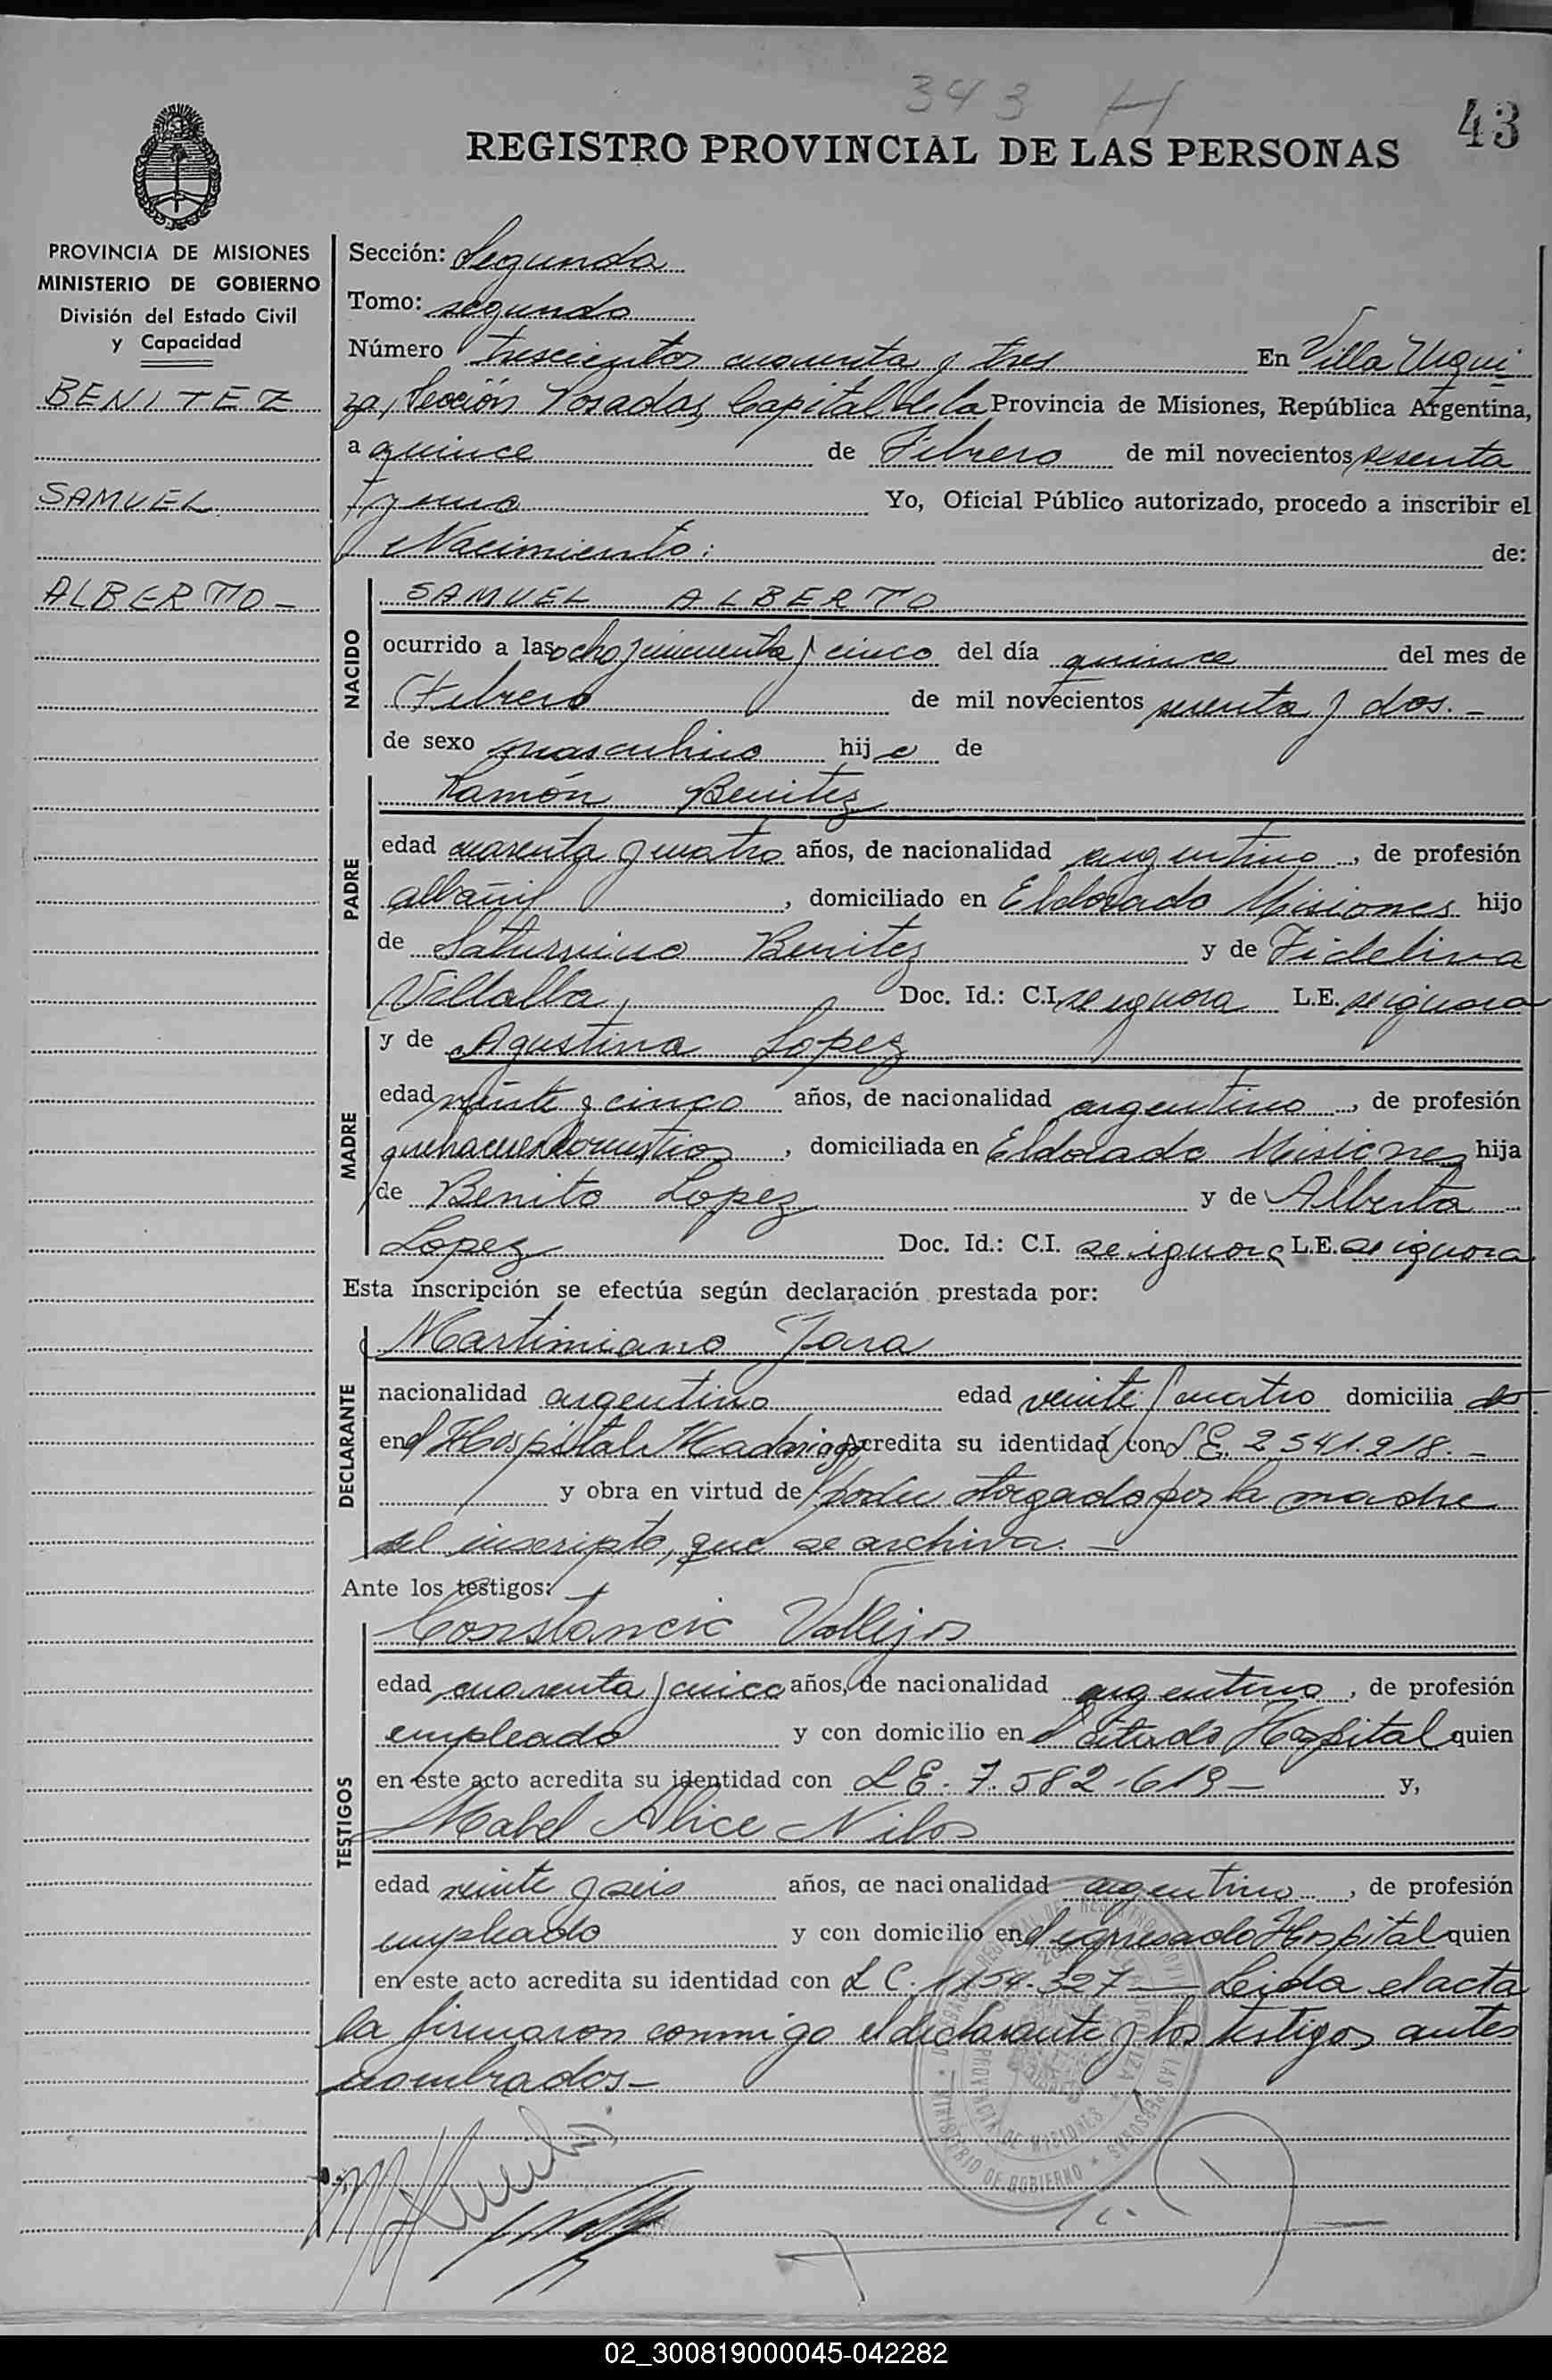 343 H
43
REGISTRO PROVINCIAL DE LAS PERSONAS
PROVINCIA DE MISIONES
MINISTERIO DE GOBIERNO
División del Estado Civil
y Capacidad
BENITEZ
SAMUEL
ALBERTO -
Sección: Segunda
Tomo: segundo
Número trescientos cuarenta y tres En Villa Urqui
za, Sección Posadas, Capital de la Provincia de Misiones, República Argentina,
a quince de Febrero de mil novecientos sesenta
Yo, Oficial Público autorizado, procedo a inscribir el
Nacimiento: de:
NACIDO
SAMUEL ALBERTO
ocurrido a las ocho y cincuenta y cinco del día quince del mes de
Febrero de mil novecientos sesenta y dos. -
de sexo masculino hijo de
PADRE
Ramón Benitez
edad cuarenta y cuatro años, de nacionalidad argentino, de profesión
albañil, domiciliado en Eldorado Misiones hijo
de Saturnino Benitez y de Fidelina
Villalba, Doc. Id.: C.I. se ignora L.E. se ignora
MADRE
y de Agustina Lopez
edad veinte y cinco años, de nacionalidad argentino, de profesión
quehaceres domesticos, domiciliada en Eldorado Misiones hija
de Benito Lopez y de Alberta
Lopez Doc. Id.: C.I. se ignora L.E. se ignora
Esta inscripción se efectúa según declaración prestada por:
DECLARANTE
Martimiano Jara
nacionalidad argentino edad veinte y cuatro domicilia do
en el Hospital Madariaga Acredita su identidad con L E. 2541.918. -
y obra en virtud de poder otorgado por la madre
del inscripto, que se archiva. -
Ante los testigos:
TESTIGOS
Constancio Vallejos
edad cuarenta y cinco años, de nacionalidad argentino, de profesión
empleado y con domicilio en el citado Hospital quien
en este acto acredita su identidad con L E. 7.582-619 - y,
Mabel Alice Nilos
edad veinte y seis años, de nacionalidad argentino, de profesión
empleado y con domicilio en el expresado Hospital quien
en este acto acredita su identidad con L C. 1154.327 - Leida el acta
la firmaron conmigo el declarante y los testigos antes
nombrados -
MINISTERIO DE GOBIERNO
PROVINCIA DE MISIONES
02_300819000045-042282